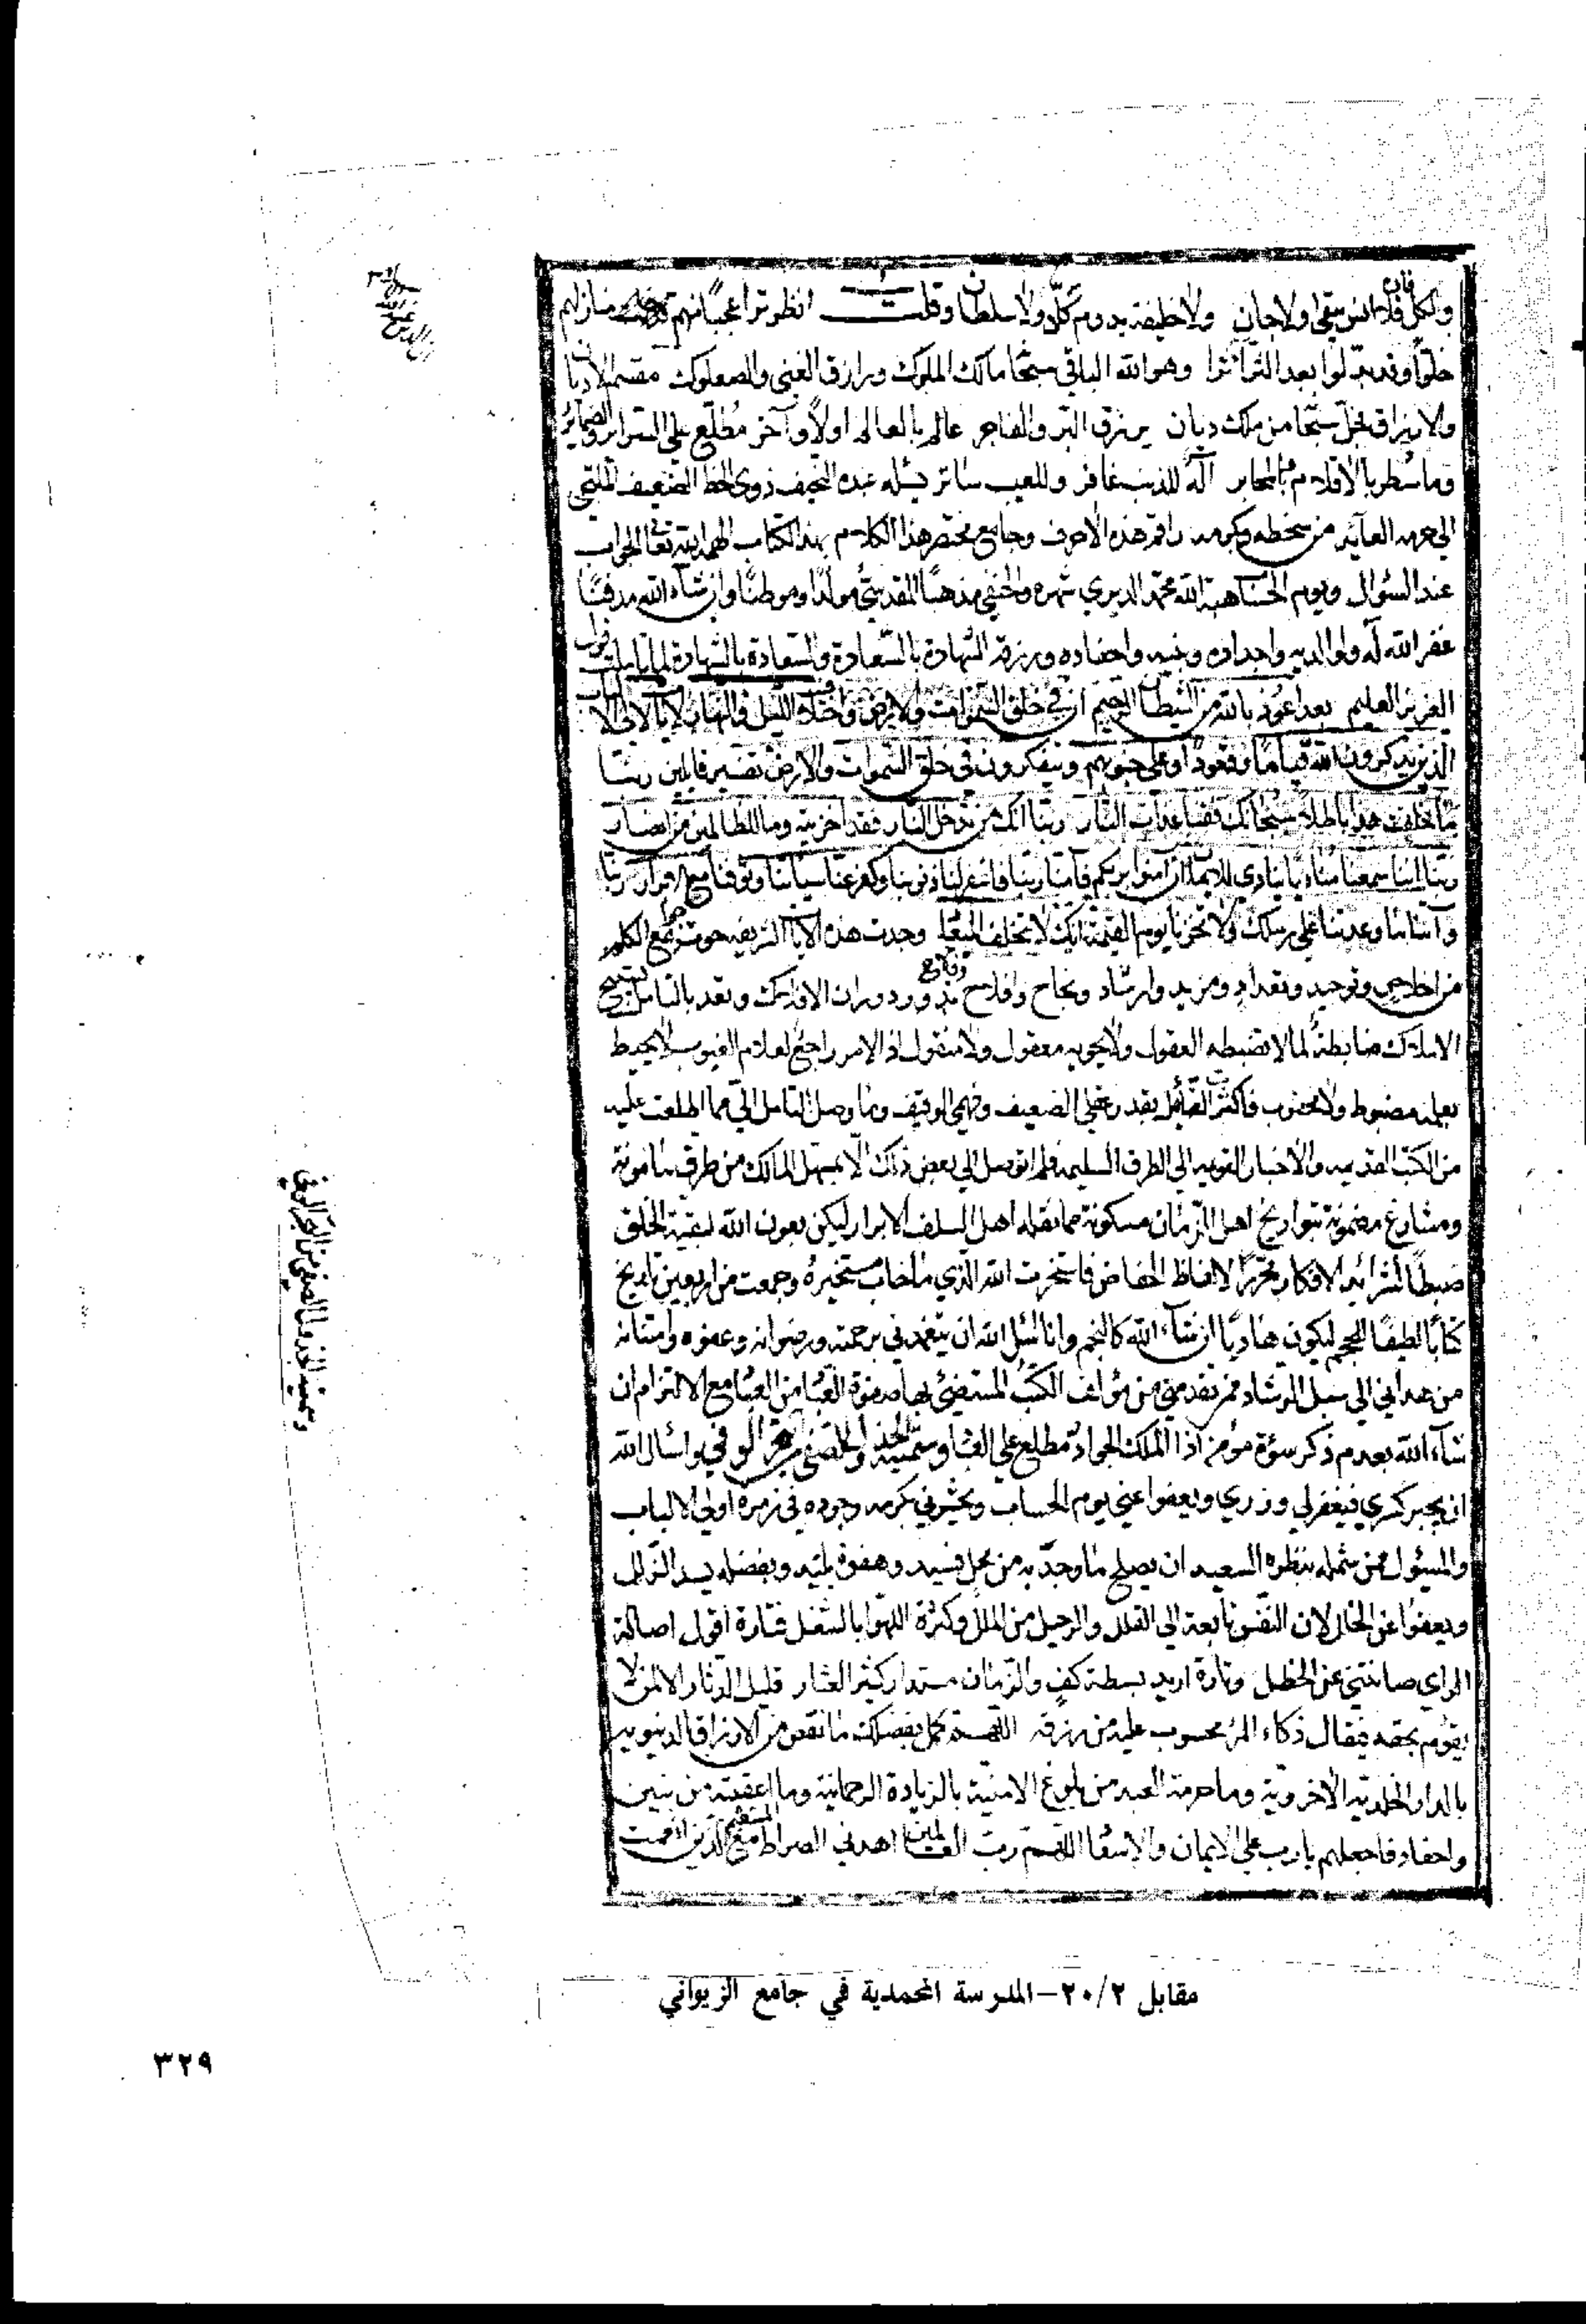 ولكل فان فلا انس يبقى ولا جان ولا خليفة يدوم كلا ولا سلطان وقلت انظر ترا عجبا منهم منازلهم
خلوا وقد بدلوا بعد الثرا ثرا وهو الله الباقي سبحان مالك الملوك ورازق الغني والصعلوك مقسم الاديان
ولارزاق سبحان من ملك ديان يرزق البر والفاجر عالم بالعالم اولا وآخر مطلع على السراير والضمائر
وما سطر بالاقلام بالمحابر اله للذنب غافر وللعيب ساتر يسئله عبده النحيف ذوى الخط الضعيف الملتجى
الى حرمه العائذ من سخطه بكرمه راقم هذه الاحرف وجامع مختصر هذا الكلام بهذا الكتاب الهمه الله تعالى الجواب
عند السؤال ويوم الحساب هبة الله محمد الديري شهره والحنفي مذهبا المقدسي مولدا وموطنا وان شاء الله مدفنا
غفر الله له ولوالديه واجداده وبنيه واحفاده ورزقه الشهادة بالسعادة والسعادة بالشهادة لما تاملت قول
العزيز العليم بعد اعوذ بالله من الشيطان الرجيم ان في خلق السموات والارض واختلاف الليل والنهار لايات لاولى الالباب
الذين يذكرون الله قياما وقعودا وعلى جنوبهم ويتفكرون في خلق السموات والارض تفسير قايلين ربنا
ما خلقت هذا باطلا سبحانك فقنا عذاب النار ربنا انك من تدخل النار فقد اخزيته وما للظالمين من انصار
ربنا اننا سمعنا مناديا ينادي للايمان ان امنوا بربكم فآمنا ربنا فاغفر لنا ذنوبنا وكفر عنا سيأتنا وتوفنا مع الابرار ربنا
وآتنا ما وعدتنا على رسلك ولا تخزنا يوم القيمة انك لا تخلف الميعاد وجدت هذه الايات الشريفه حوت جوامع الكلم
من اخلاص وتوحيد وتعداد ومزيد وارشاد ونجاح وافلاح ودوران الافلاك وتعد بالتامل تسبيح
الاملاك ضابطة لما لا تضبطه العقول ولا يحويه معقول ولا منقول اذ الامر راجع لعلام الغيوب لا يحيط
بعلمه مضبوط ولا محسوب فاكثرت التأمل بقدر عقلي الضعيف وفهمي الوقيف وما وصل التامل الي مما اطلعت عليه
من الكتب القديمه والاخبار القويمه الى الطرق السليمه فلم اتوصل الى بعض ذلك الا بمسهل المسالك من طرق مامونة
ومشارع مضمونة بتواريخ اهل الزمان مسكونة مما نقله اهل السلف الابرار ليكن بعون الله لبقية الخلق
ضبطا لشرائد الافكار محررا لالفاظ فاستخرت الله الذي ما خاب مستخيره وجمعت من اربعين تاريخ
كتابا لطيف الحجم ليكون هاديا ان شاء الله كالنجم وانا اسئل الله ان يتغمدني برحمته ورضوانه وعفوه وامتنانه
من هداني الى سبل الرشاد ممن تقدمني من مؤلف الكتب المستضئ بها صفوة العباد من العباد مع الالتزام ان
شاء الله بعدم ذكر سؤة مؤمن اذ الملك الجواد مطلع على العباد وسميته الجدول الصفي من البحر الوفي واسال الله
ان يجبر كسري فيغفر لي وزري ويعفوا عني يوم الحساب ويحشرني بكرمه وجوده في زمرة اولى الالباب
والمسؤل ممن شمله بنظره السعيد ان يصلح ما وجد به من وهفوة وبفضله يسد الزلل
ويعفوا عن الخلل لان النفس تابعة الى القلل والرحيل من الملل وكثرة اللهو بالشغل فتارة اقول اصالة
الراي صانتني عن الخطل وتارة اريد بسطة كف والزمان كثير العثار قليل الدثار الا لمن لا
يقوم بحقه فيقال ذكاء المرء محسوب عليه من رزقه اللهم كمل بفضلك ما نقص من الارزاق الدنيويه
بالدار الخلدية الاخروية وما حرمه العبد من بلوغ الامنية بالزيادة الرحمانية وما اعقبته من بنين
واحفاد فاجعلهم يا رب على الايمان والاسعاد اللهم رب العالمين اهدني الصراط المستقيم مع الذين انعمت
وسميته الجدول الصفي من البحر الوفي
مقابل ٢٠/٢ – المدرسة المحمدية في جامع الزيواني
٣٢٩